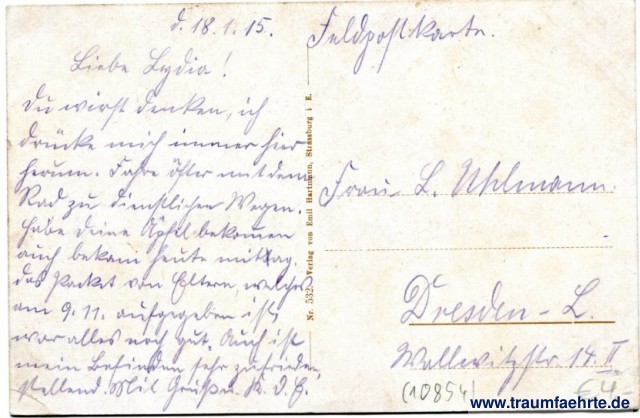 d. 18.1.15.
Liebe Lydia!
Du wirst denken, ich
drücke mich immer hier
herum. Fahre öfter mit dem
Rad zu dienstlichen Wegen.
Habe deine Äpfel bekommen
auch bekam heute mittag
das Packet von Eltern, welches
am 9.11. aufgegeben ist,
war alles noch gut. Auch ist
mein Befinden sehr zufrieden-
stellend. Mit Gruß u. K. d. E.
Verlag von Emil Hartmann, Strassburg i. E.
Feldpostkarte.
Frau L. Uhlmann.
Dresden-L.
Wallwitzstr. 14 II
(10854)
www.traumfaehrte.de